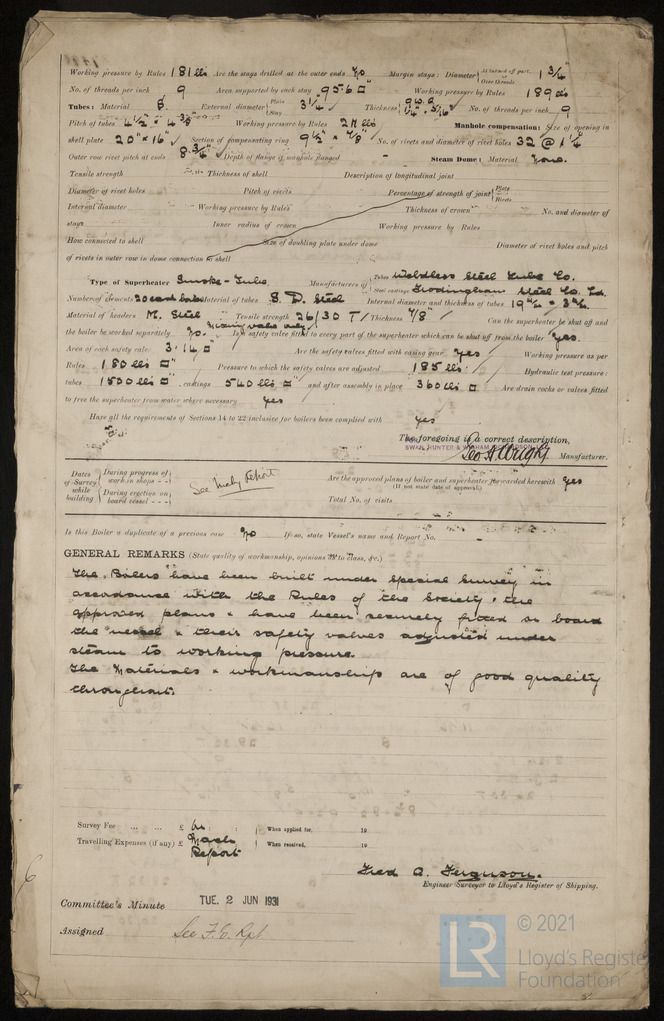 Working pressure by Rules 181 lbs Are the stays drilled at the outer ends No Margin stays: Diameter { At turned off part, or Over threads 1 3/4"
No. of threads per inch 9 Area supported by each stay 95.6 □" Working pressure by Rules 189 lbs
Tubes: Material S External diameter { Plain Stay 3 1/4" Thickness { 9 W.G. 1/4" & 5/16" No. of threads per inch 9
Pitch of tubes 4 1/2" × 4 3/8" Working pressure by Rules lbs Manhole compensation: Size of opening in
shell plate 20" × 16" Section of compensating ring 9 1/2" × 7/8" No. of rivets and diameter of rivet holes 32 @ 1 1/4"
Outer row rivet pitch at ends 8 3/4" Depth of flange if manhole flanged - Steam Dome: Material None.
Tensile strength Thickness of shell Description of longitudinal joint
Diameter of rivet holes Pitch of rivets Percentage of strength of joint { Plate Rivets
Internal diameter Working pressure by Rules Thickness of crown No. and diameter of
stays Inner radius of crown Working pressure by Rules
How connected to shell Size of doubling plate under dome Diameter of rivet holes and pitch
of rivets in outer row in dome connection to shell
Type of Superheater Smoke-Tube Manufacturers of { Tubes Weldless Steel Tube Co. Steel castings Frodingham Steel Co. Ld.
Number of elements 20 each boiler Material of tubes S. D. Steel Internal diameter and thickness of tubes
Material of headers M. Steel Tensile strength 26/30 T Thickness 7/8" Can the superheater be shut off and
the boiler be worked separately No. Is a safety valve fitted to every part of the superheater which can be shut off from the boiler Yes.
Area of each safety valve 3.14 □" Are the safety valves fitted with easing gear Yes Working pressure as per
Rules 180 lbs □" Pressure to which the safety valves are adjusted 185 lbs Hydraulic test pressure:
tubes 1500 lbs □", castings 540 lbs □" and after assembly in place 360 lbs □" Are drain cocks or valves fitted
to free the superheater from water where necessary Yes
Have all the requirements of Sections 14 to 22 inclusive for boilers been complied with Yes
The foregoing is a correct description,
SWAN, HUNTER & WIGHAM RICHARDSON
Geo H Wright Manufacturer.
Dates of Survey while building { During progress of work in shops - - During erection on board vessel - - - See Mchy Report Are the approved plans of boiler and superheater forwarded herewith Yes
(If not state date of approval.)
Total No. of visits
Is this Boiler a duplicate of a previous case No If so, state Vessel's name and Report No. -
GENERAL REMARKS (State quality of workmanship, opinions as to class, &c.)
The Boilers have been built under special survey in
accordance with the Rules of the Society, the
approved plans & have been securely fitted on board
the vessel & their safety valves adjusted under
steam to working pressure.
The Materials & workmanship are of good quality
throughout.
Survey Fee ... ... £ On : { When applied for, 19
Travelling Expenses (if any) £ Mach Report { When received, 19
Fred A. Ferguson.
Engineer Surveyor to Lloyd's Register of Shipping.
Committee's Minute TUE. 2 JUN 1931
Assigned See F.E. Rpt
LR © 2021
Lloyd's Register
Foundation